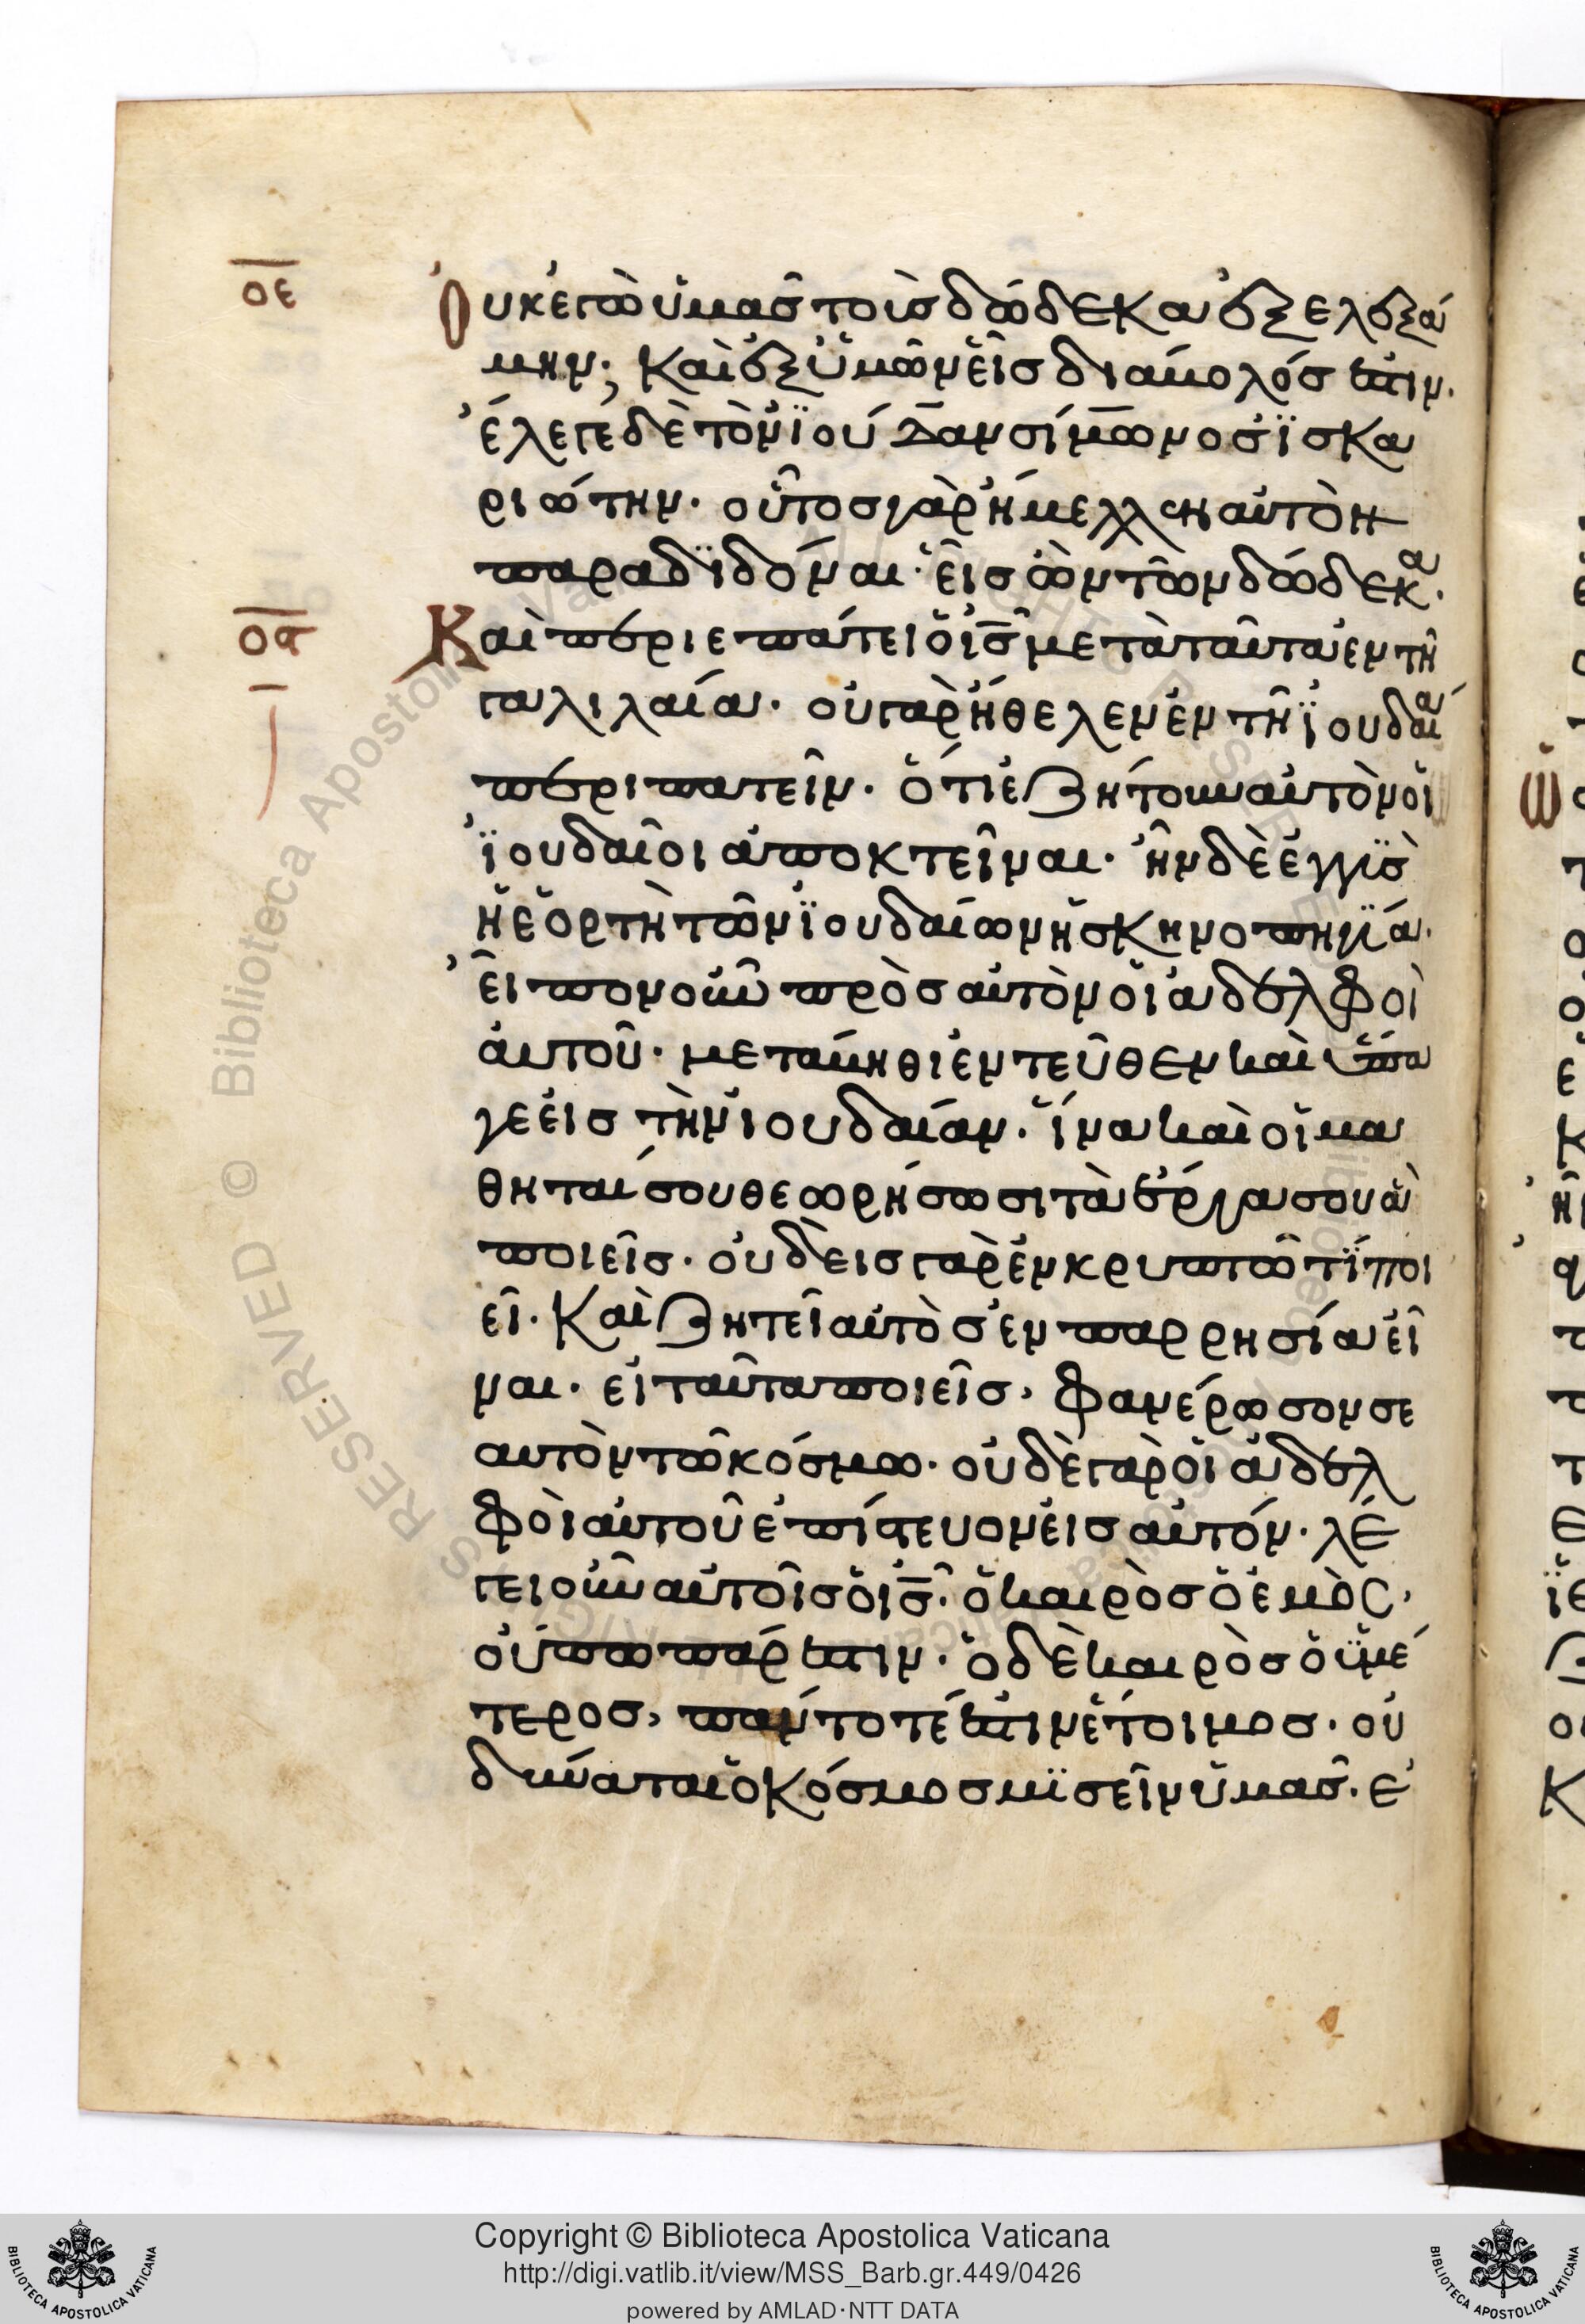 οε
Οὐκ ἐγὼ ὑμᾶς τοὺς δώδεκα ἐξελεξά
μην; καὶ ἐξ ὑμῶν εἷς διάβολός ἐστιν.
ἔλεγε δὲ τὸν ἰούδαν σίμωνος ἰσκα
ριώτην. οὗτος γὰρ ἤμελλεν αὐτὸν
παραδιδόναι. εἷς ὢν τῶν δώδεκα.
ος
Καὶ περιεπάτει ὁ ις μετὰ ταῦτα ἐν τῆ
α
γαλιλαία. οὐ γὰρ ἤθελεν ἐν τῆ ἰουδαία
περιπατεῖν. ὅτι ἐζήτουν αὐτὸν οἱ
ἰουδαῖοι ἀποκτεῖναι. ἦν δὲ ἐγγὺς
ἡ ἑορτὴ τῶν ἰουδαίων ἡ σκηνοπηγία.
εἶπον οὖν πρὸς αὐτὸν οἱ ἀδελφοὶ
αὐτοῦ. μετάβηθι ἐντεῦθεν καὶ ὕπα
γε εἰς τὴν ἰουδαίαν. ἵνα καὶ οἱ μα
θηταί σου θεωρήσωσι τὰ ἔργα σου ἃ
ποιεῖς. οὐδεὶς γὰρ ἐν κρυπτῶ τί ποι
εῖ. καὶ ζητεῖ αὐτὸς ἐν παρρησία εἶ
ναι. εἰ ταῦτα ποιεῖς, φανέρωσον σε
αυτὸν τῶ κόσμω. οὐδὲ γὰρ οἱ ἀδελ
φοὶ αὐτοῦ ἐπίστευον εἰς αὐτόν. λέ
γει οὖν αὐτοῖς ὁ ις. ὁ καιρὸς ὁ ἐμὸς,
οὔπω πάρεστιν. ὁ δὲ καιρὸς ὁ ὑμέ
τερος, πάντοτέ ἐστιν ἕτοιμος. οὐ
δύναται ὁ κόσμος μισεῖν ὑμᾶς. ἐ
Copyright © Biblioteca Apostolica Vaticana
http://digi.vatlib.it/view/MSS_Barb.gr.449/0426
powered by AMLAD·NTT DATA